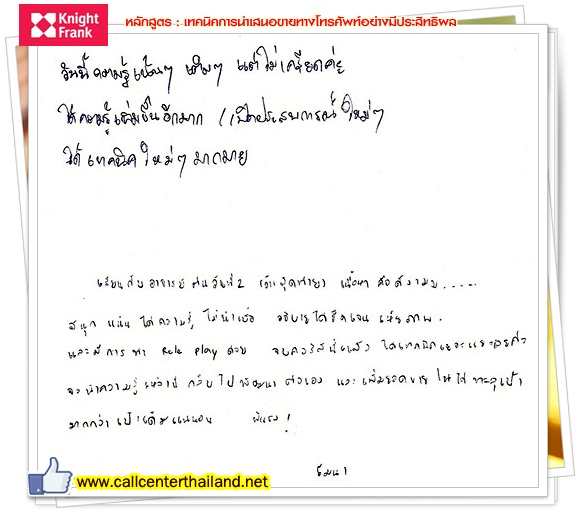 Knight
Frank
หลักสูตร : เทคนิคการนำเสนอขายทางโทรศัพท์อย่างมีประสิทธิผล
วันนี้ความรู้แน่นๆ เต็มๆ แต่ไม่เครียดค่ะ
ได้ความรู้เพิ่มขึ้นอีกมาก เปิดประสบการณ์ใหม่ๆ
ได้เทคนิคใหม่ๆ มากมาย
เรียนกับอาจารย์ เป็นวันที่ 2 (วันสุดท้าย) เนื้อหา คือ ดีงาม.....
สนุก แน่น ได้ความรู้ ไม่น่าเบื่อ อธิบายได้ชัดเจน เห็นภาพ.
และมีการทำ Role Play ด้วย จบคอร์สนี้แล้ว ได้เทคนิคเยอะแยะเลยค่ะ
จะนำความรู้เหล่านี้ กลับไปพัฒนาตัวเอง และเพิ่มยอดขายให้ได้ทะลุเป้า
มากกว่าเป้าเดิมแน่นอน !
www.callcenterthailand.net